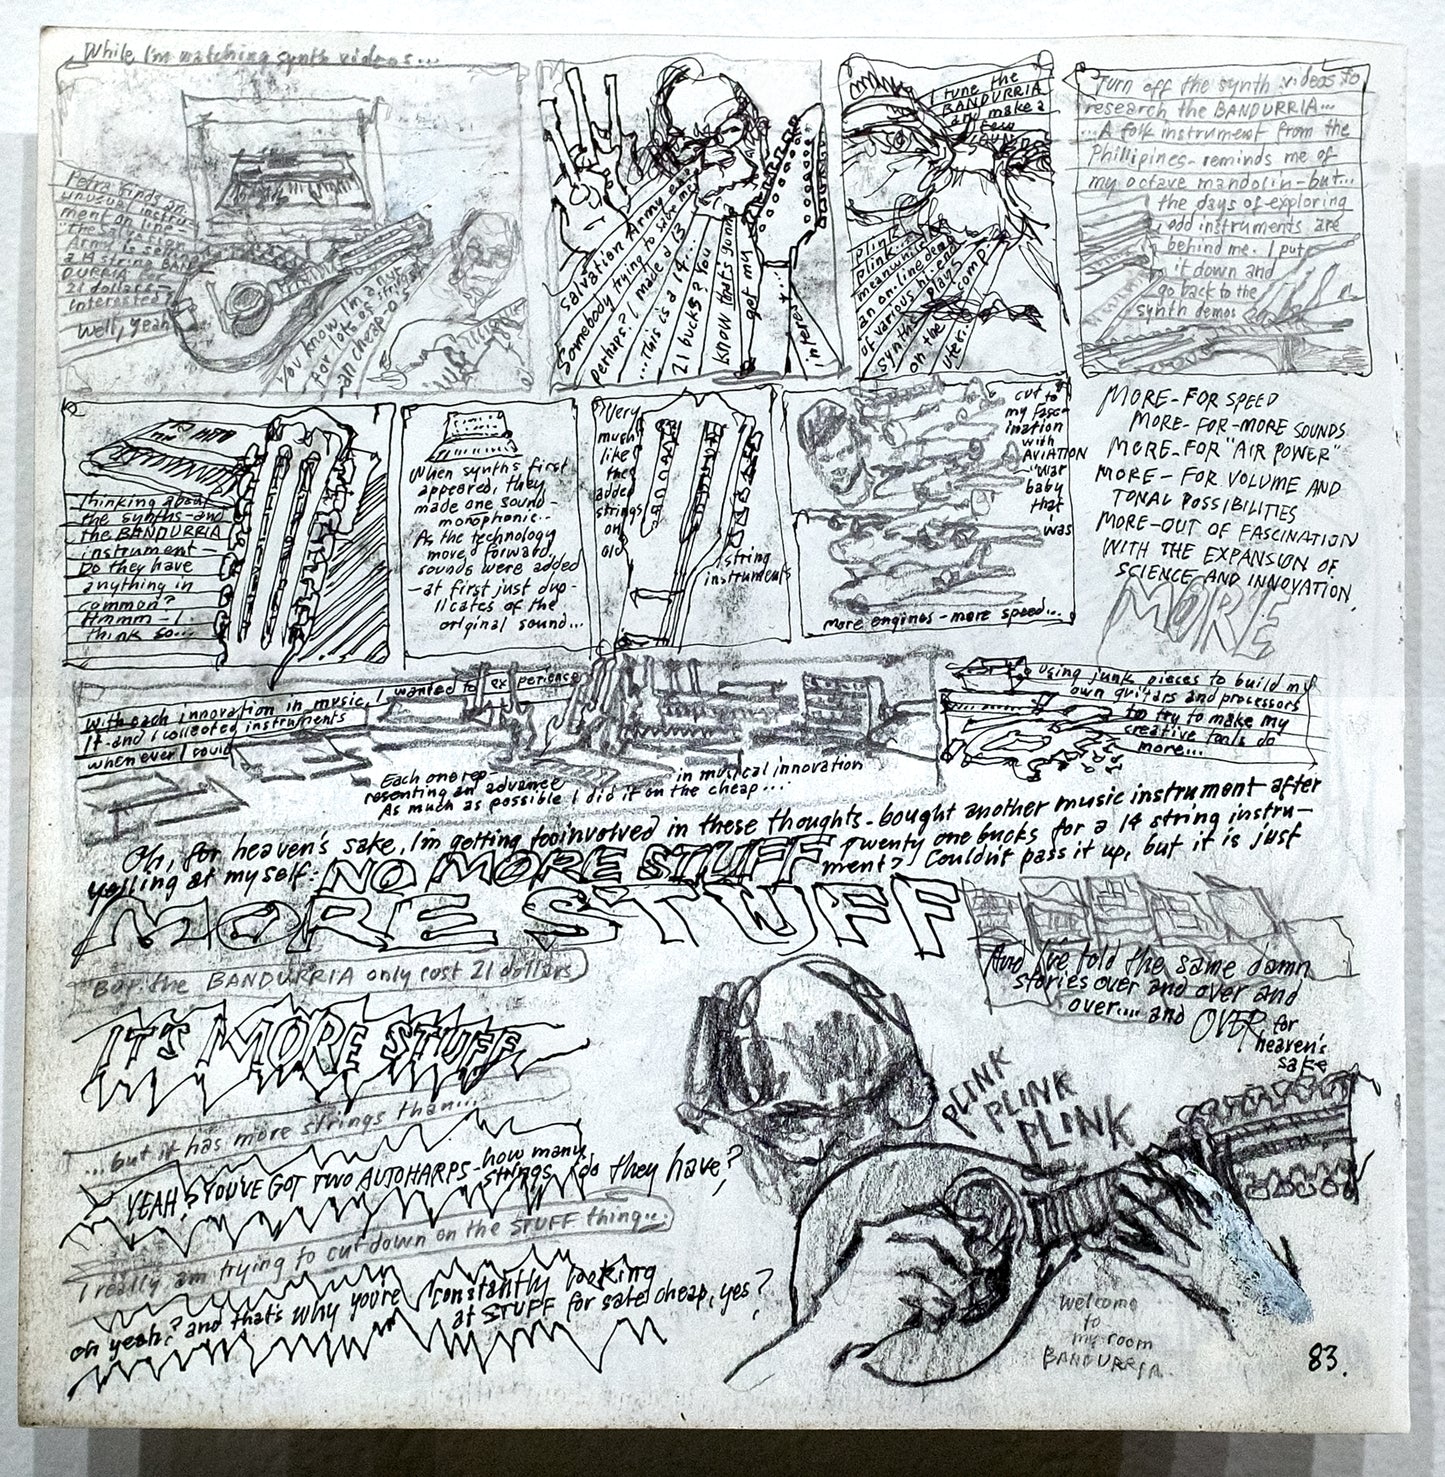 While I'm watching synth videos...
Petra finds an
unusual instru-
ment on line -
"The Salvation
Army is selling
a 14 string BAN-
DURRIA
21 dollars-
interested?
Well, yeah
you know I'm a
for lots of strings
an cheap-o's
Salvation Army
Somebody trying to save me
perhaps? I made a 13
...This is a 14...
21 bucks? You
know that's gonna
get my
interest...
I tune the
BANDURRIA
and make a
few
plink
plink...
meanwhile
an on-line demo
of various hi-end
synths plays
on the comp-
uter.
Turn off the synth videos to
research the BANDURRIA...
...A folk instrument from the
Phillipines- reminds me of
my octave mandolin-but...
the days of exploring
odd instruments are
behind me. I put
it down and
go back to the
synth demos
Thinking about
the synths-and
the BANDURRIA
instrument-
Do they have
anything in
common?
Hmmm - I
think so...
When synths first
appeared, they
made one sound-
monophonic...
As the technology
moved forward,
sounds were added
-at first just dup-
licates of the
original sound...
Very
much
like
they
added
strings
on
old
string
instruments
cut to
my fasc-
ination
with
AVIATION
"war
baby
that
was
more engines - more speed...
MORE-FOR SPEED
MORE-FOR-MORE SOUNDS
MORE-FOR "AIR POWER"
MORE-FOR VOLUME AND
TONAL POSSIBILITIES
MORE-OUT OF FASCINATION
WITH THE EXPANSION OF
SCIENCE AND INNOVATION.
MORE
With each innovation in music, I wanted to experience
it-and I collected instruments
whenever I could
Each one rep-
resenting an advance in musical innovation
As much as possible I did it on the cheap...
Using junk pieces to build my
own guitars and processors
to try to make my
creative tools do
more...
Oh, for heaven's sake, I'm getting too involved in these thoughts-bought another music instrument after
yelling at myself: NO MORE STUFF Twenty one bucks for a 14 string instru-
ment? Couldn't pass it up, but it is just
MORE STUFF
But the BANDURRIA only cost 21 dollars
And I've told the same damn
stories over and over and
over.... and OVER, for
heaven's
sake
IT'S MORE STUFF
...but it has more strings than...
YEAH? YOU'VE GOT TWO AUTOHARPS-how many
strings do they have?
I really am trying to cut down on the STUFF thing...
oh yeah? and that's why you're constantly looking
at STUFF for sale cheap, yes?
PLINK
PLINK
PLINK
Welcome
to
my room
BANDURRIA.
83.